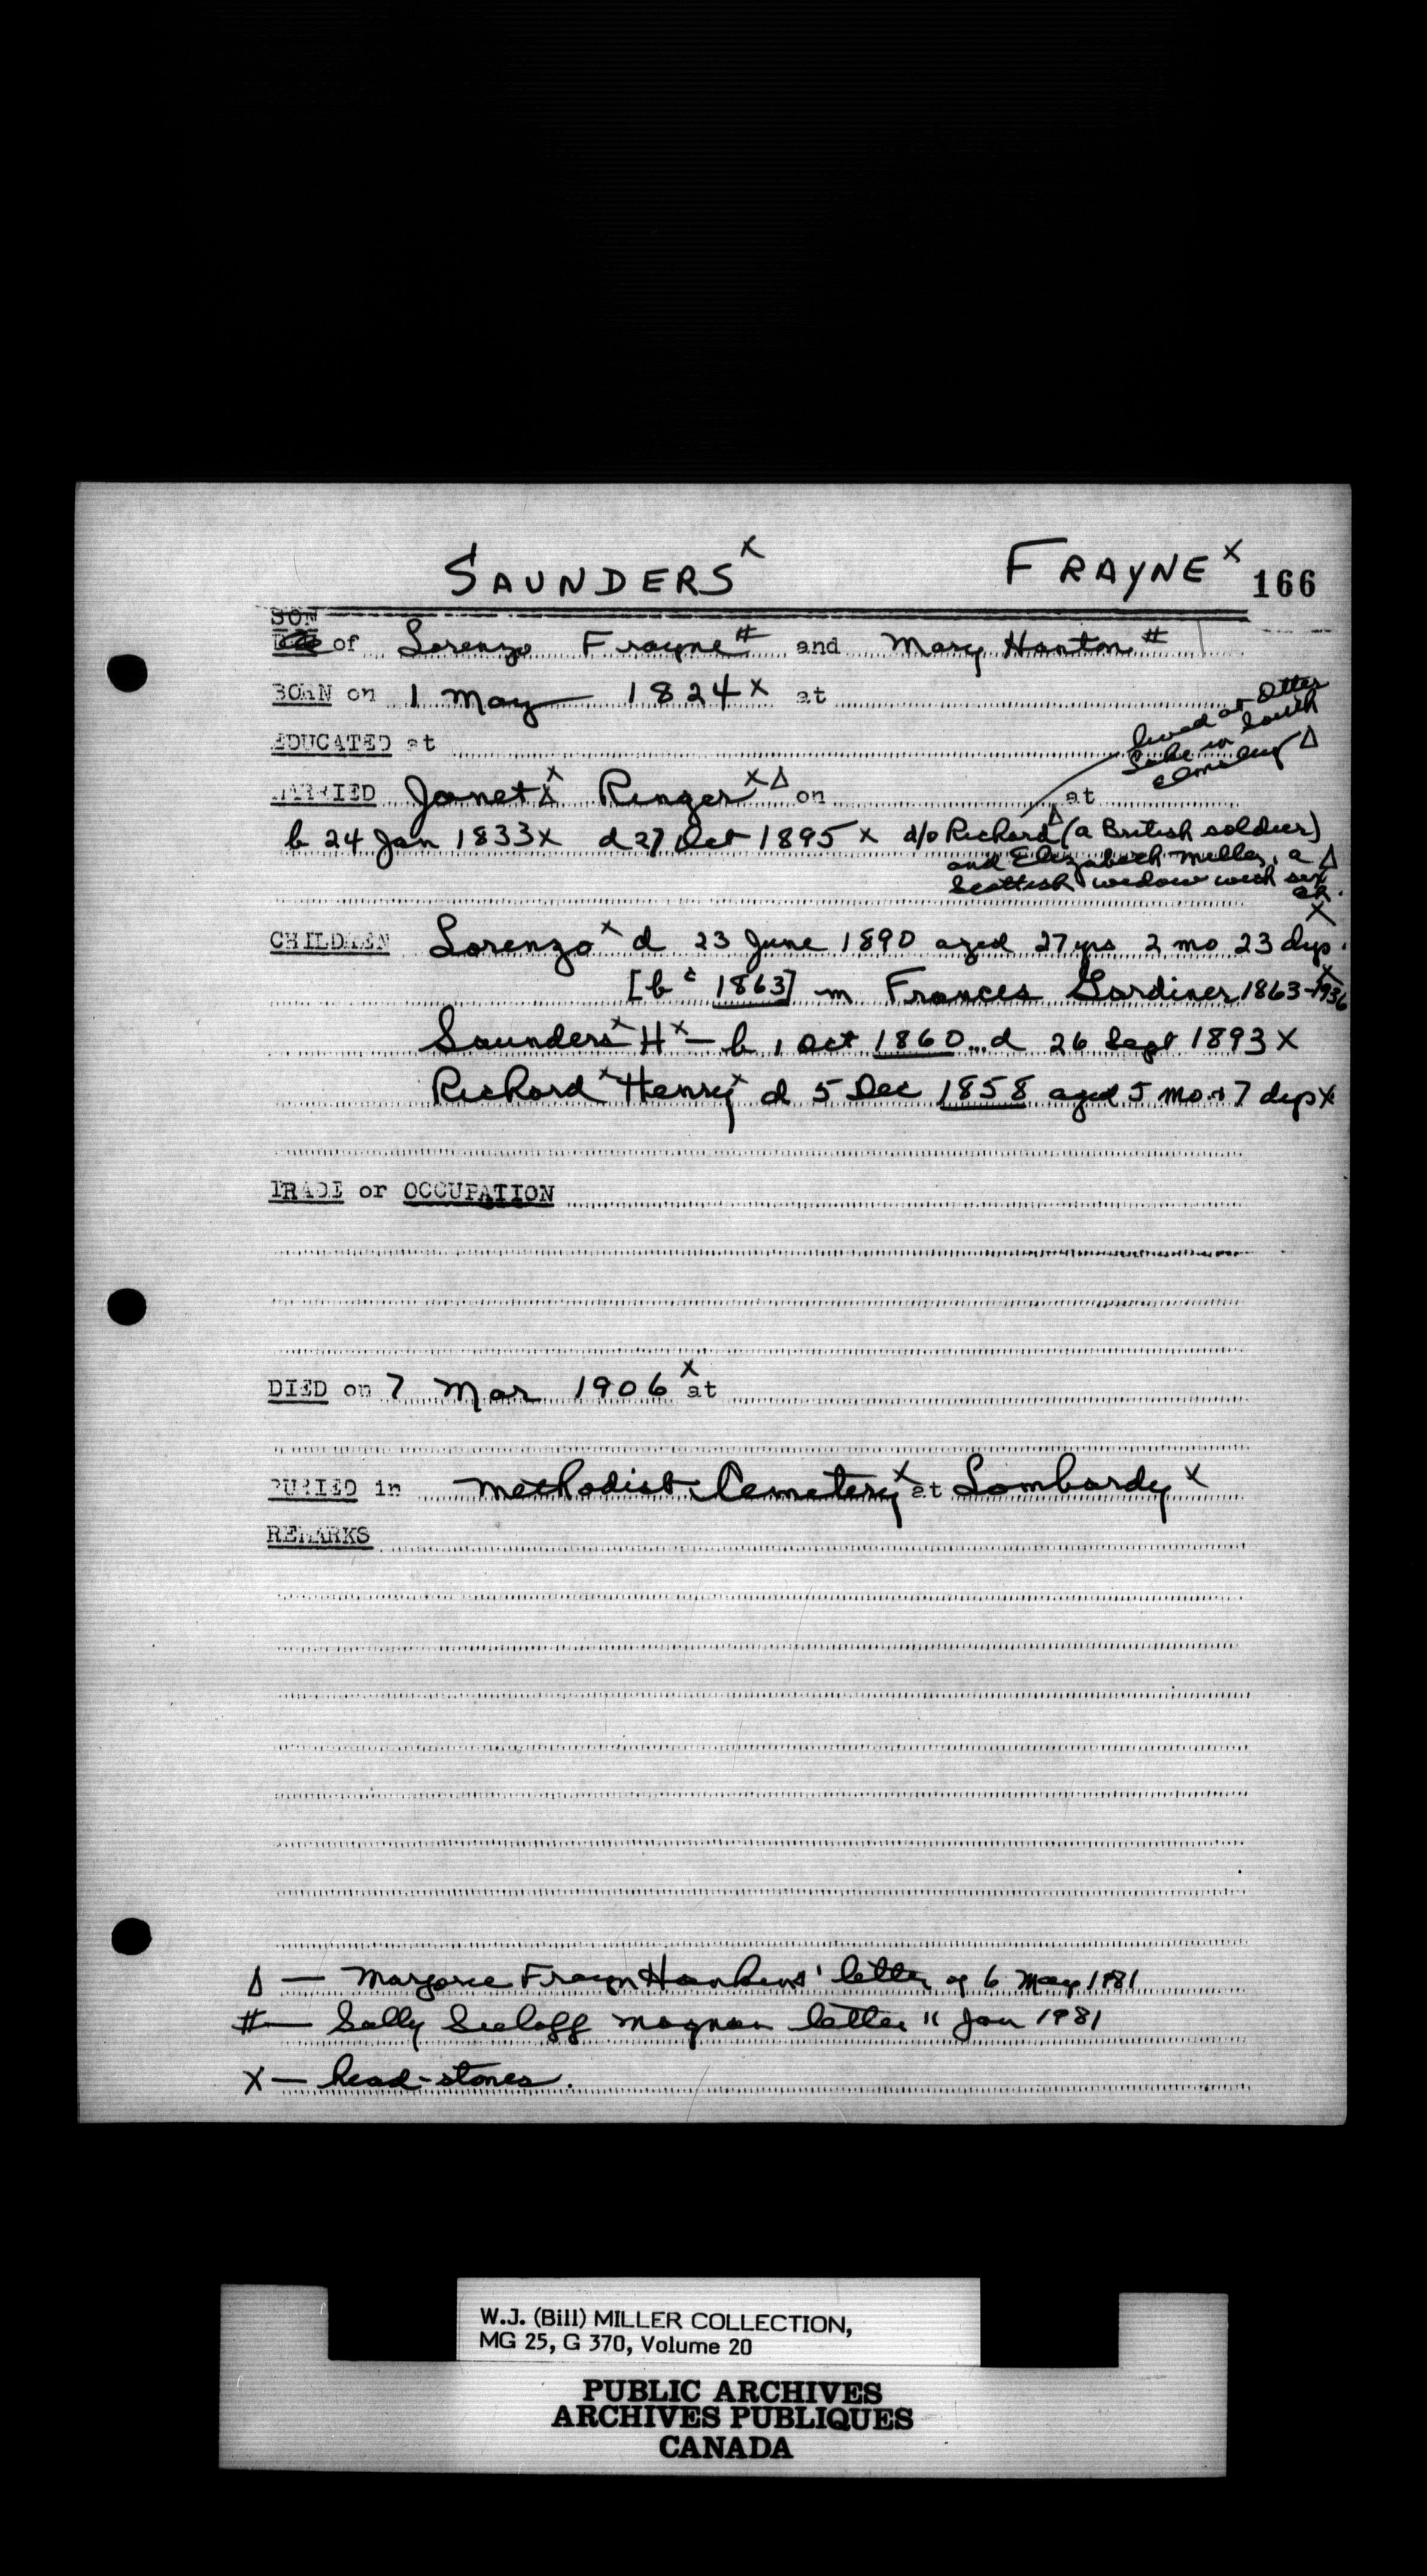 SAUNDERS x FRAYNE x 166
SON
of Lorenzo Frayne # and Mary Hanton #
BORN on 1 May 1824 x at
lived at Otter
Lake in South
Elmsley Δ
EDUCATED at
MARRIED Janet x Ringer x Δ on at
b 24 Jan 1833 x d 27 Oct 1895 x d/o Richard Δ (a British soldier)
and Elizabeth Miller, a Δ
Scottish widow with six
ch.
CHILDREN Lorenzo x d 23 June 1890 aged 27 yrs 2 mo 23 dys. x
[b c 1863] m Frances Gardiner 1863-1936 x
Saunders x H x - b 1 Oct 1860 d 26 Sept 1893 x
Richard x Henry x d 5 Dec 1858 aged 5 mo + 7 dys x
TRADE or OCCUPATION
DIED on 7 Mar 1906 x at
BURIED in Methodist Cemetery x at Lombardy x
REMARKS
Δ — Marjorie Frayn Hankins' letter of 6 May 1981
# — Sally Seeloff Magnan letter 11 Jan 1981
x — head-stones.
W.J. (Bill) MILLER COLLECTION,
MG 25, G 370, Volume 20
PUBLIC ARCHIVES
ARCHIVES PUBLIQUES
CANADA